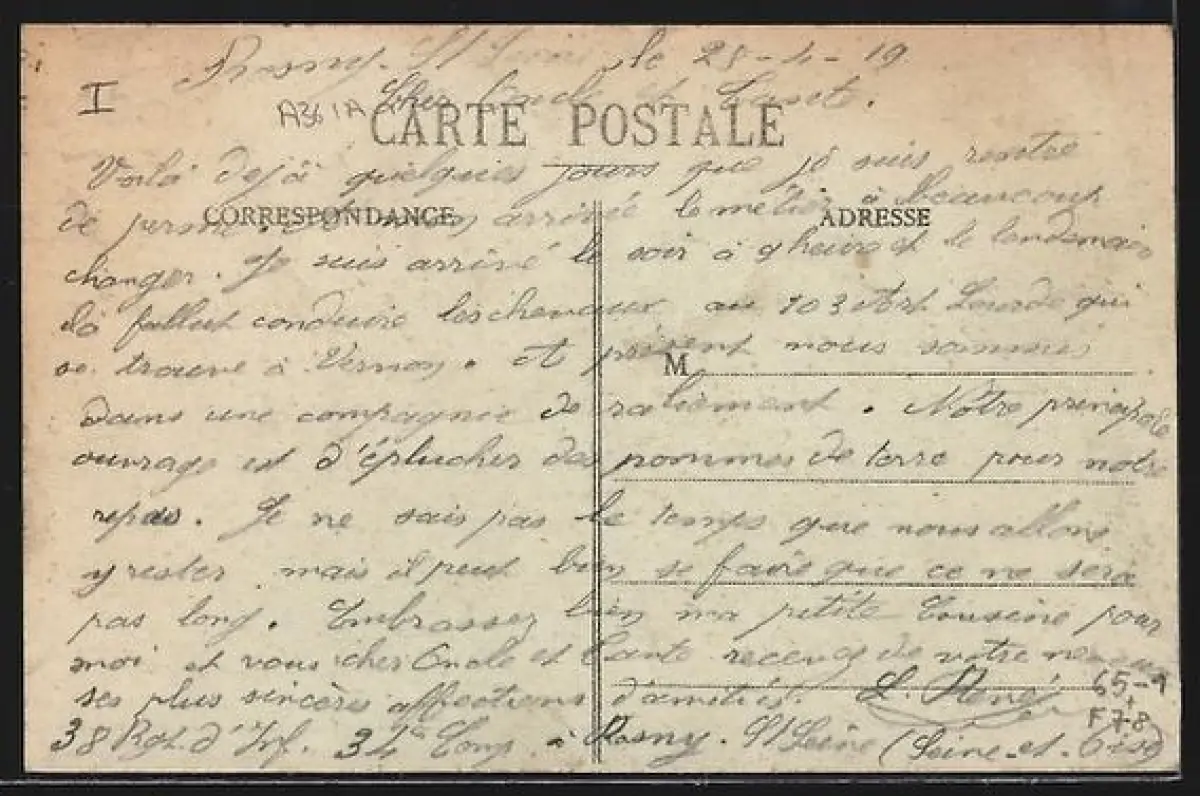 Rosny. S/ Seine le 28-4-19
I
A361A
Cher Oncle et Tante.
CARTE POSTALE
Voila dejà quelques jours que je suis rentre
CORRESPONDANCE
ADRESSE
de perme. arrivée le métier à beaucoup
changer. Je suis arrivé le soir à 9 heures et le lendemain
il à fallut conduire les chevaux au 103 Art Lourde qui
se trouve à Vernon. et présent nous sommes
M
dans une compagnie de raliement. Nôtre principale
ouvrage est d'éplucher des pommes de terre pour notre
repas. Je ne sais pas le temps que nous allons
y rester mais il peut bien se faire que ce ne sera
pas long. Embrassez bien ma petite Cousine pour
moi et vous cher Oncle et Tante recevez de votre neveu
ses plus sincères affections d'amitiés. L. René
65-9
F 7-8
38 Rgt. d'Inf. 34e Comp. à Rosny. S/ Seine (Seine-et-Oise)